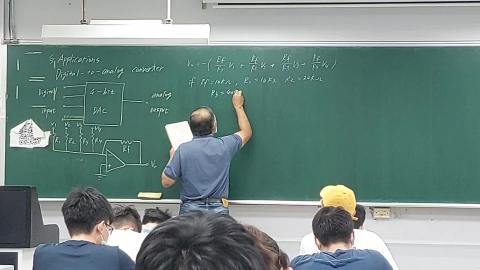 §1 Applications
Digital-to-analog converter
Digital
input
4-bit
DAC
analog
output
V1 V2 V3 V4
R1 R2 R3 R4
Rf
Vo
Vo = -( Rf/R1 V1 + Rf/R2 V2 + Rf/R3 V3 + Rf/R4 V4 )
if Rf = 10kΩ, R1 = 10kΩ, R2 = 20kΩ
R3 = 40k